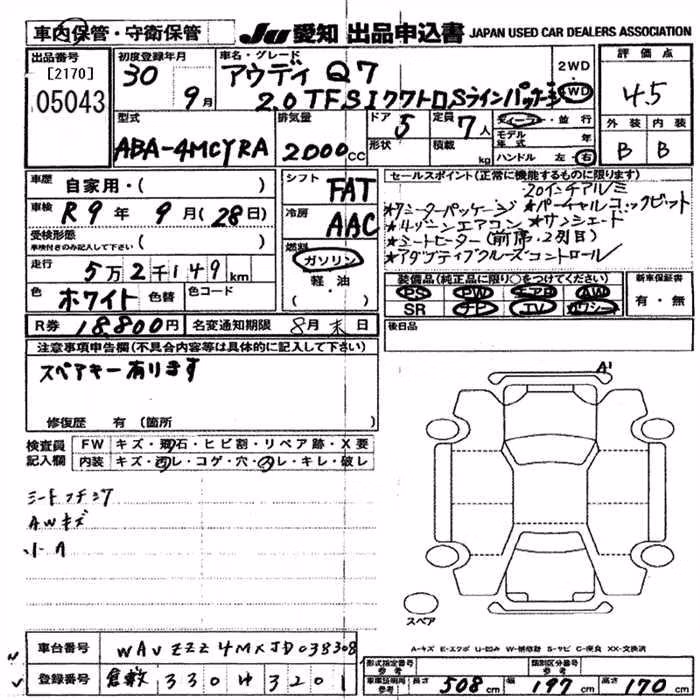 車内保管・守衛保管
JU 愛知 出品申込書 JAPAN USED CAR DEALERS ASSOCIATION
出品番号
[2170]
05043
初度登録年月
30年 9月
車名・グレード
アウディ Q7
2.0TFSIクワトロSラインパッケージ
2WD
4WD
評価点
4.5
外装 内装
B B
型式
ABA-4MCYRA
排気量
2000cc
ドア 5
形状
定員 7人
積載 kg
ディーラー・並行
モデル年式 年
ハンドル 左・右
車歴 自家用・( )
車検 R9年9月(28日)
受検形態
車検付きのみ記入して下さい ( )
走行 5万2千149km
色 ホワイト 色替 色コード
シフト FAT
冷房 AAC
燃料
ガソリン
軽・油
・( )
セールスポイント(正常に機能するものに限ります)
20インチアルミ
★7シーターパッケージ ★バーチャルコックピット
★4ゾーンエアコン ★サンシェード
★シートヒーター(前席、2列目)
★アダプティブクルーズコントロール
装備品(純正品に限り○をつけてください)
PS PW エアB AW
SR ナビ TV カワシート
新車保証書
有・無
R券 18,800円 名変通知期限 8月末日
後日品
注意事項申告欄(不具合内容等は具体的に記入して下さい)
スペアキー有ります
修復歴 有(箇所 )
検査員記入欄
FW キズ・飛石・ヒビ割・リペア跡・X要
内装 キズ・汚レ・コゲ・穴・スレ・キレ・破レ
AWキズ
小A
A1
スペア
A-キズ E-エクボ U-凹み W-補修跡 S-サビ C-腐食 XX-交換済
車台番号 WAVZZZ4MXJD038308
登録番号 倉敷 330 サ 3201
形式指定番号 参考
類別区分番号
車庫証明用 参考 長さ 508cm 幅 197cm 高さ 170cm